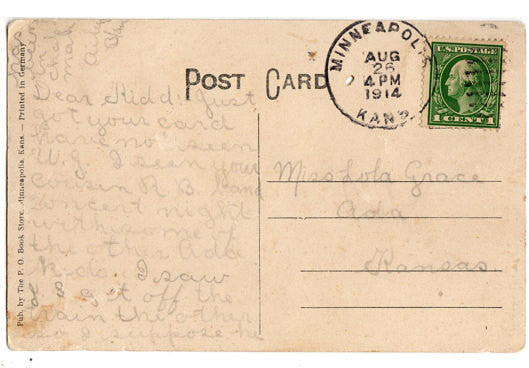 POST CARD
MINNEAPOLIS
AUG
26
4 PM
1914
KANS.
U.S. POSTAGE
1 CENT 1
Dear Kidd: Just
got your card
have not seen
I seen your
cousin R. B. band
concert night
with some of
the other Ada
Kids. I saw
get off the
train the other
so I suppose he
Miss Lola Grace
Ada
Kansas
Pub. by The P. O. Book Store, Minneapolis, Kans. — Printed in Germany